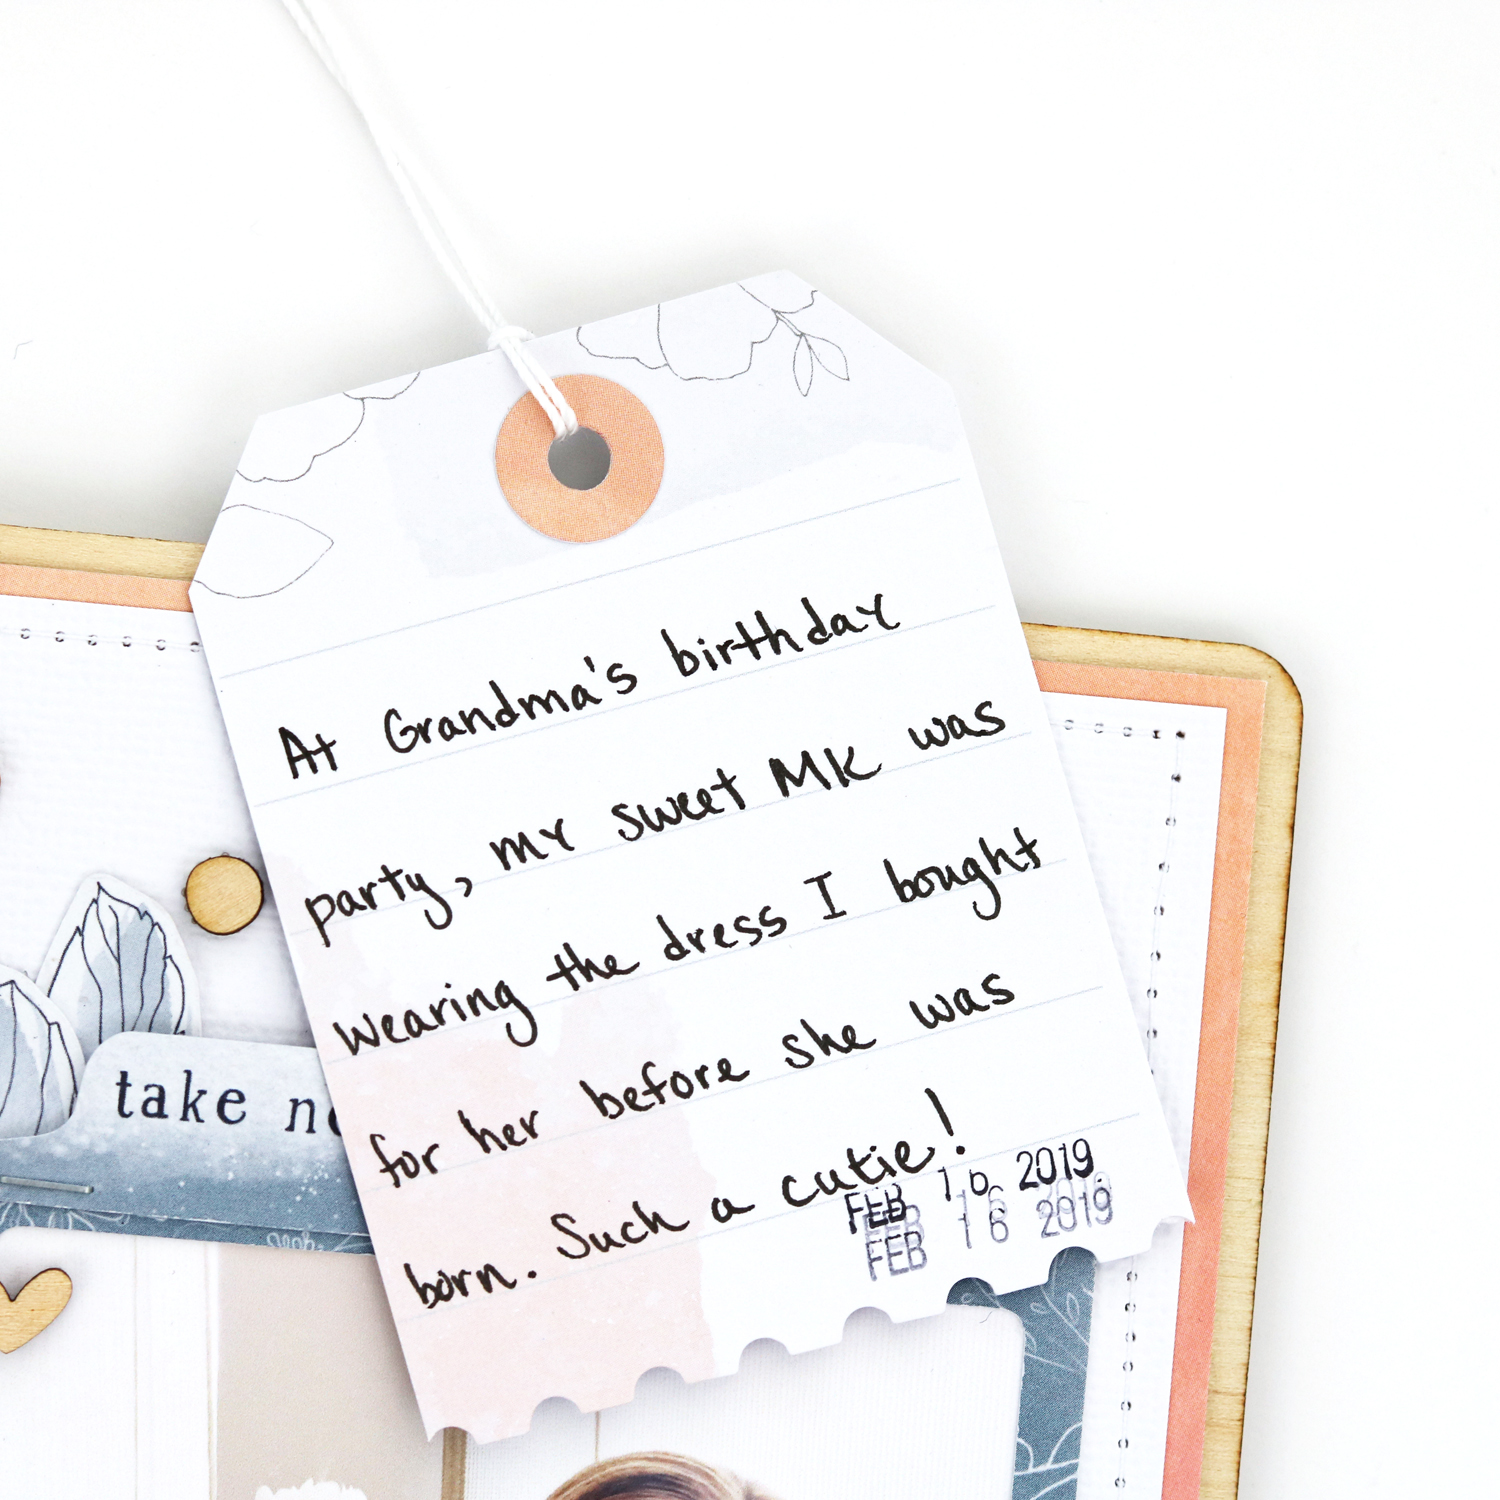 At Grandma's birthday
party, my sweet MK was
wearing the dress I bought
for her before she was
born. Such a cutie!
FEB 16 2019
FEB 16 2019
FEB 16 2019
take